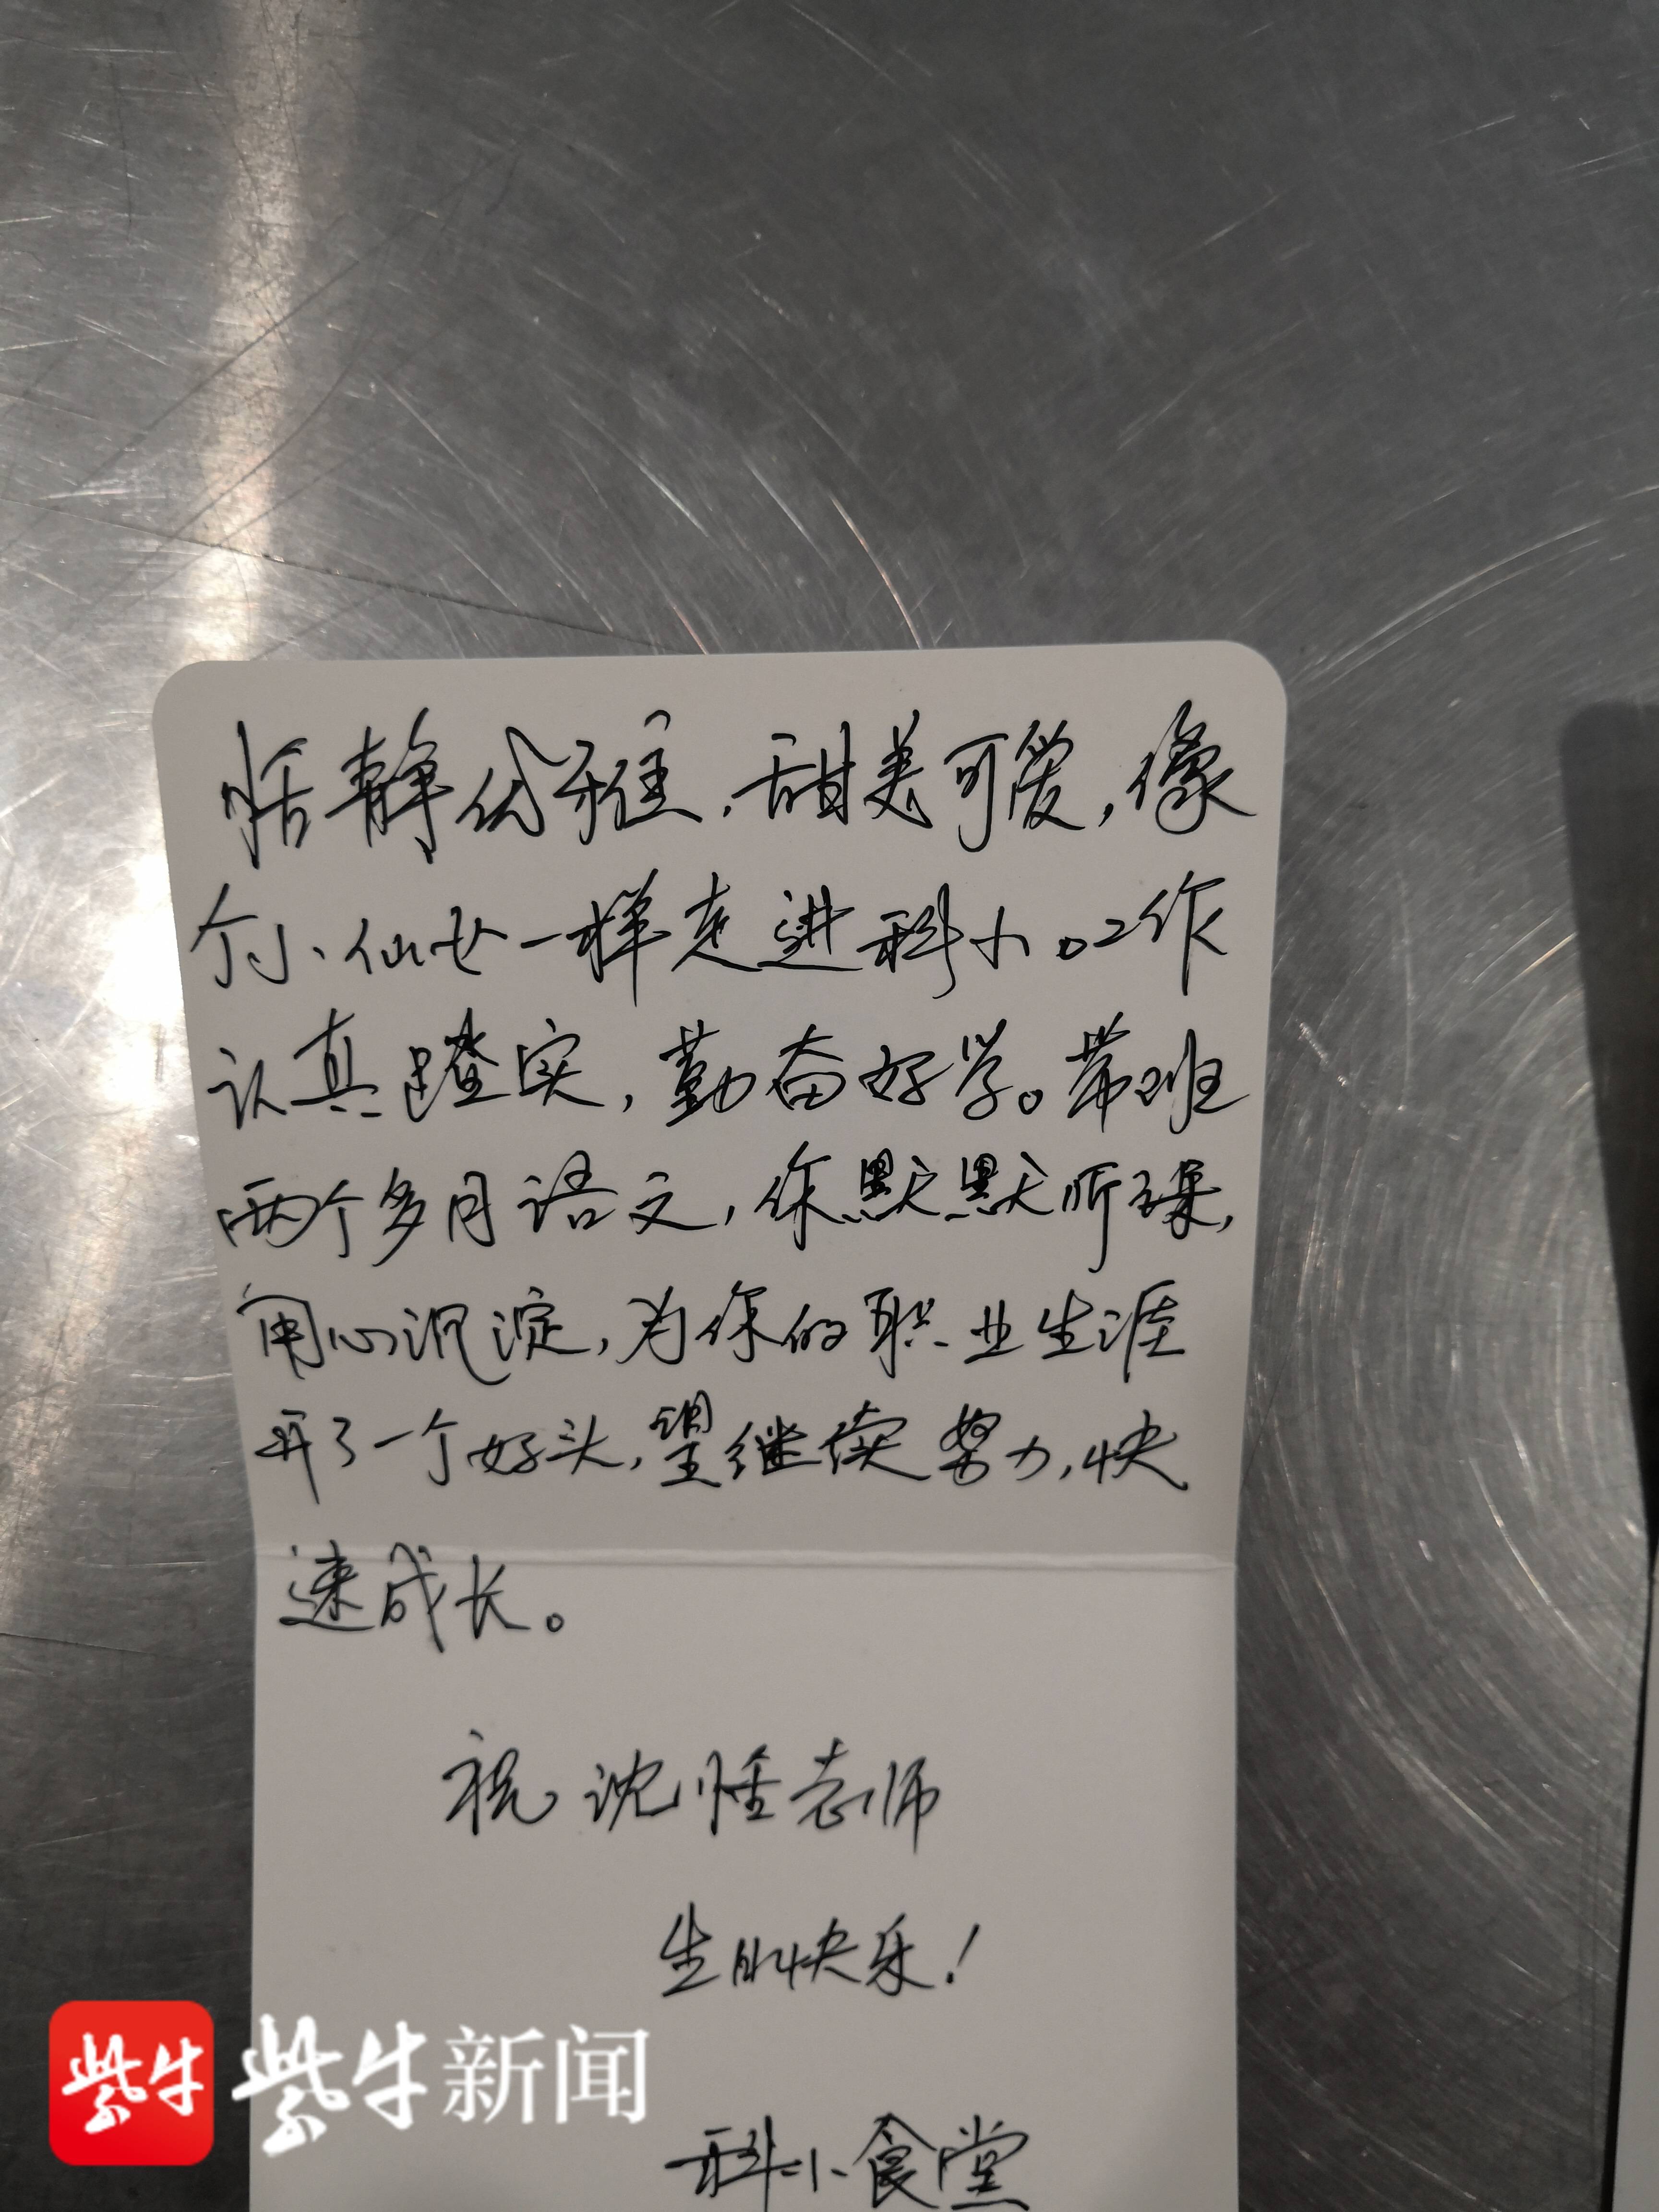 恬静优雅，甜美可爱，像
个小仙女一样走进科小。工作
认真踏实，勤奋好学。带班
两个多月语文，你默默听课，
用心沉淀，为你的职业生涯
开了一个好头，望继续努力，快
速成长。
祝沈恬老师
生日快乐！
科小食堂
紫牛 紫牛新闻